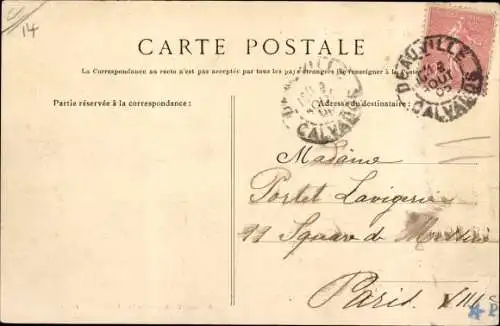 14
CARTE POSTALE
La Correspondance au recto n'est pas acceptée par tous les pays étrangers (Se renseigner à la Poste)
Partie réservée à la correspondance:
Adresse du destinataire:
DEAUVILLE
AOUT
CALVADOS
CALVADOS
Madame
Portet Lavigerie
11 Square de
Paris XVIIe